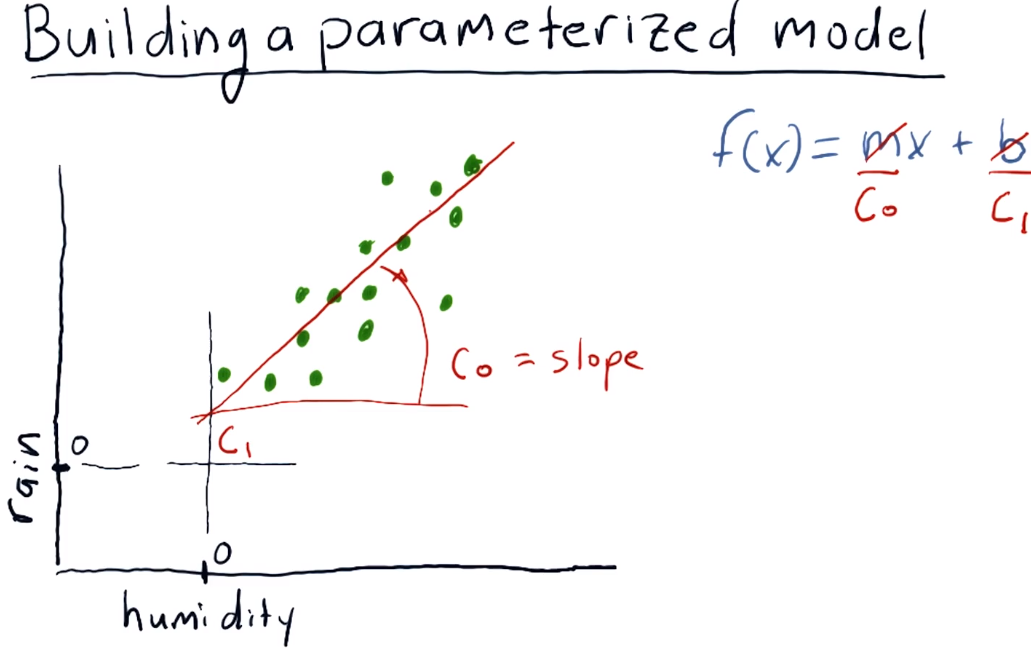 Building a parameterized model
f(x) = mx + b
C0 C1
C0 = slope
C1
0
rain
0
humidity